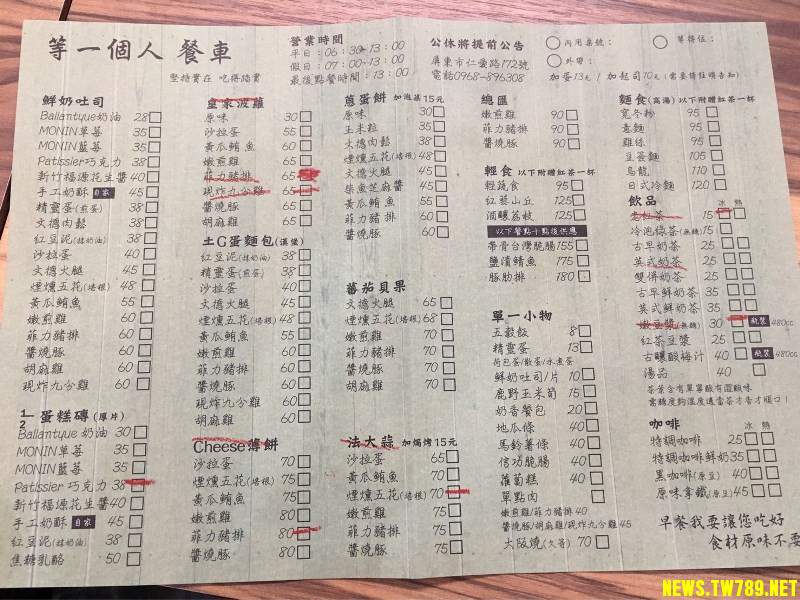 等一個人 餐車
堅持實在 吃得踏實
營業時間
平日:06:30-13:00
假日:07:00-13:00
最後點餐時間:13:00
公休將提前公告
屏東市仁愛路172號
電話0968-896308
內用桌號:
外帶:
單轉位:
加蛋13元 / 加起司10元(需要請註明告知)
鮮奶吐司
Ballantyue奶油 28
MONIN草莓 38
MONIN藍莓 38
Patissier巧克力 38
新竹福源花生醬 40
手工奶酥 自家 45
精靈蛋(煎蛋) 38
文德肉鬆 38
紅豆泥(抹奶油) 38
沙拉蛋 40
文德火腿 45
煙燻五花(培根) 48
黃瓜鮪魚 55
嫩煎雞 60
菲力豬排 60
醬燒豚 60
胡麻雞 60
現炸九分雞 60
1/2 蛋糕磚(厚片)
Ballantyue 奶油 30
MONIN草莓 35
MONIN藍莓 35
Patissier 巧克力 38
新竹福源花生醬 40
手工奶酥 自家 45
紅豆泥(抹奶油) 38
焦糖乳酪 50
皇家波蘿
原味 30
沙拉蛋 55
黃瓜鮪魚 60
嫩煎雞 65
菲力豬排 65
現炸九分雞 65
醬燒豚 65
胡麻雞 65
土G蛋麵包(漢堡)
紅豆泥(抹奶油) 38
精靈蛋(煎蛋) 38
沙拉蛋 40
文德火腿 45
煙燻五花(培根) 48
黃瓜鮪魚 55
嫩煎雞 60
菲力豬排 60
醬燒豚 60
現炸九分雞 60
胡麻雞 60
Cheese薄餅
沙拉蛋 70
黃瓜鮪魚 75
煙燻五花(培根) 75
嫩煎雞 80
菲力豬排 80
醬燒豚 80
煎蛋餅 加泡菜15元
原味 30
玉米粒 35
文德肉鬆 35
煙燻五花(培根) 48
文德火腿 40
柴魚芝麻醬 45
黃瓜鮪魚 55
菲力豬排 60
醬燒豚 60
蕃茄貝果
文德火腿 65
煙燻五花(培根) 68
嫩煎雞 70
菲力豬排 70
醬燒豚 70
胡麻雞 70
法大蒜 加焗烤15元
沙拉蛋 65
黃瓜鮪魚 70
煙燻五花(培根) 70
嫩煎雞 70
菲力豬排 70
醬燒豚 70
總匯
嫩煎雞 90
菲力豬排 90
醬燒豚 90
輕食 以下附贈紅茶一杯
輕蔬食 95
紅藜山丘 125
酒釀荔枝 125
以下餐點十點後供應
帶骨台灣脆腸 155
鹽漬鯖魚 175
豚肋排 180
單一小物
五穀飯 8
精靈蛋 13
荷包蛋/散蛋/水煮蛋
鮮奶吐司/片 10
鹿野玉米筍 15
奶香餐包 20
地瓜條 40
馬鈴薯條 40
信功脆腸 40
蘿蔔糕 40
單點肉
嫩煎雞/菲力豬排 40
醬燒豚/胡麻雞/現炸九分雞 45
大阪燒(久哥) 70
麵食(高湯) 以下附贈紅茶一杯
寬冬粉 95
意麵 95
雞絲 95
豆簽麵 105
烏龍 110
日式冷麵 120
飲品 冰 熱
老紅茶 15
冷泡綠茶(無糖) 15
古早奶茶 25
英式奶茶 25
雙併奶茶 25
古早鮮奶茶 35
英式鮮奶茶 35
嫩豆漿(無糖) 30 瓶裝 480cc
紅茶豆漿 25
古釀酸梅汁 40 瓶裝 480cc
湯品 40
茶葉含有單寧酸有澀酸味
需糖度夠濕度適當茶才香才順口!
咖啡 冰 熱
特調咖啡 25
特調咖啡鮮奶 35
黑咖啡(原豆) 40
原味拿鐵(原豆) 45
早餐我要讓您吃好
食材原味不要
NEWS.TW789.NET